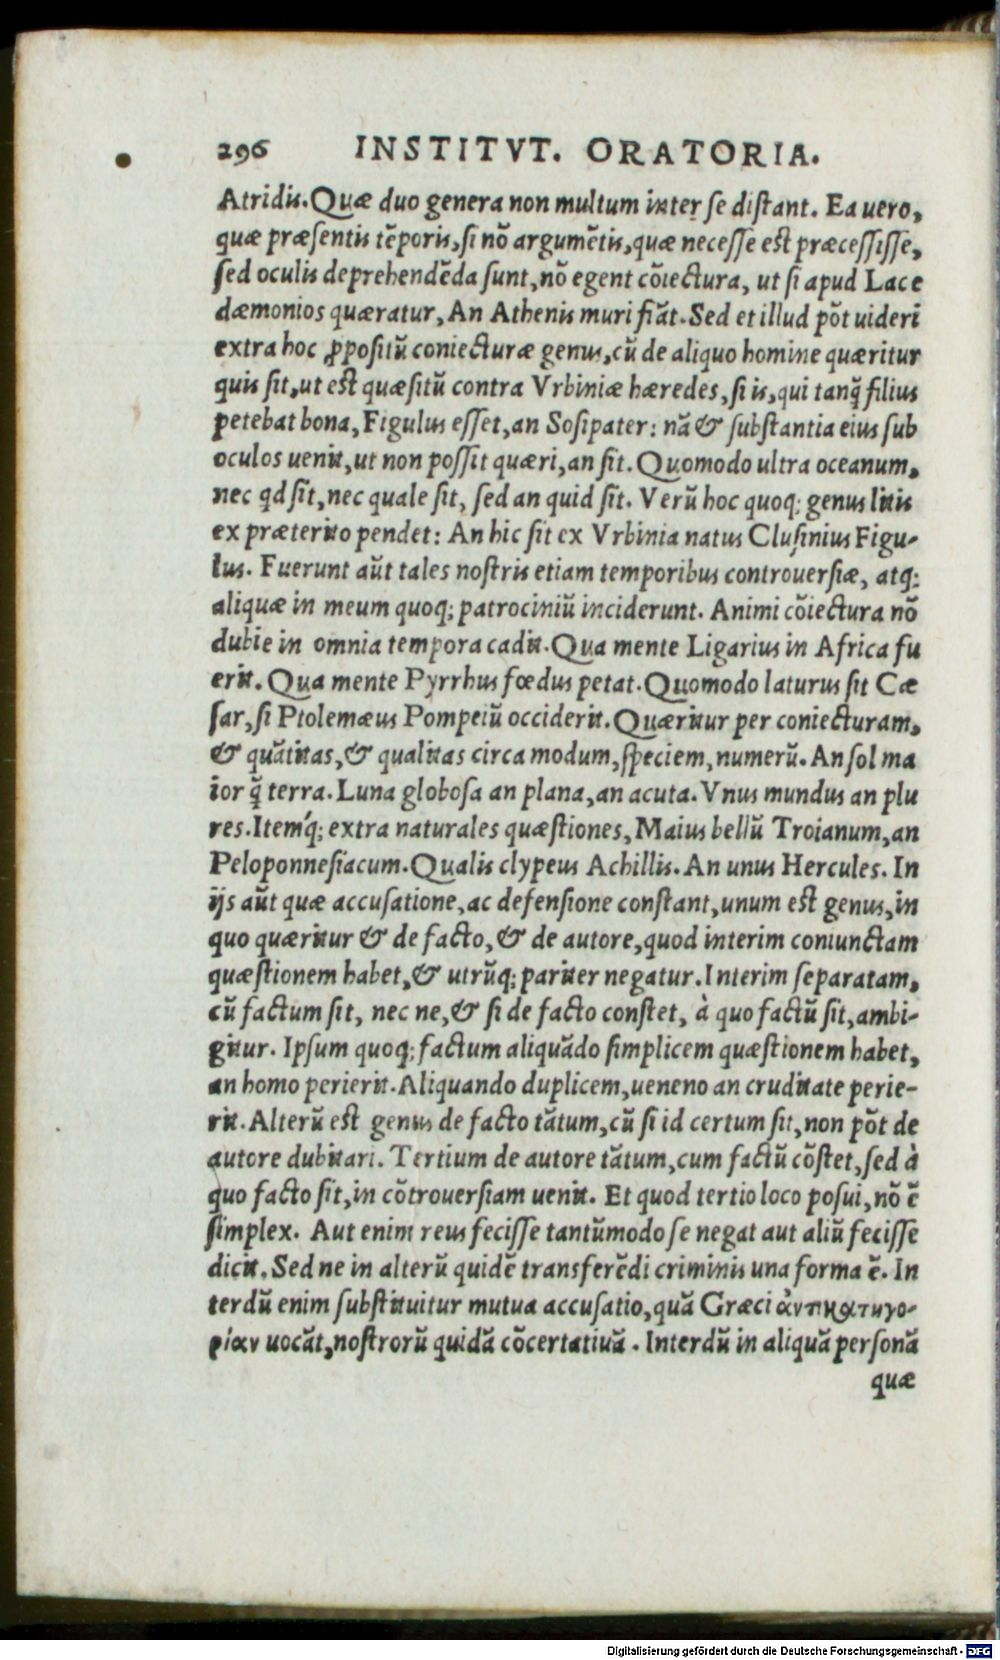 296 INSTITVT. ORATORIA.
Atridis. Quæ duo genera non multum inter se distant. Ea uero,
quæ præsentis tẽporis, si nõ argumẽtis, quæ necesse est præcessisse,
sed oculis deprehendẽda sunt, nõ egent cõiectura, ut si apud Lace
dæmonios quæratur, An Athenis muri fiãt. Sed et illud põt uideri
extra hoc ꝓpositũ coniecturæ genus, cũ de aliquo homine quæritur
quis sit, ut est quæsitũ contra Vrbiniæ hæredes, si is, qui tanq̃ filius
petebat bona, Figulus esset, an Sosipater: nã & substantia eius sub
oculos uenit, ut non possit quæri, an sit. Quomodo ultra oceanum,
nec qd sit, nec quale sit, sed an quid sit. Verũ hoc quoq; genus litis
ex præterito pendet: An hic sit ex Vrbinia natus Clusinius Figu-
lus. Fuerunt aũt tales nostris etiam temporibus controuersiæ, atq;
aliquæ in meum quoq; patrociniũ inciderunt. Animi cõiectura nõ
dubie in omnia tempora cadit. Qua mente Ligarius in Africa fu
erit. Qua mente Pyrrhus fœdus petat. Quomodo laturus sit Cæ
sar, si Ptolemæus Pompeiũ occiderit. Quæritur per coniecturam,
& quãtitas, & qualitas circa modum, speciem, numerũ. An sol ma
ior q̃ terra. Luna globosa an plana, an acuta. Vnus mundus an plu
res. Itemq́; extra naturales quæstiones, Maius bellũ Troianum, an
Peloponnesiacum. Qualis clypeus Achillis. An unus Hercules. In
ijs aũt quæ accusatione, ac defensione constant, unum est genus, in
quo quæritur & de facto, & de autore, quod interim coniunctam
quæstionem habet, & utrũq; pariter negatur. Interim separatam,
cũ factum sit, nec ne, & si de facto constet, à quo factũ sit, ambi-
gitur. Ipsum quoq; factum aliquãdo simplicem quæstionem habet,
an homo perierit. Aliquando duplicem, ueneno an cruditate perie-
rit. Alterũ est genus de facto tãtum, cũ si id certum sit, non põt de
autore dubitari. Tertium de autore tãtum, cum factũ cõstet, sed à
quo facto sit, in cõtrouersiam uenit. Et quod tertio loco posui, nõ ẽ
simplex. Aut enim reus fecisse tantũmodo se negat aut aliũ fecisse
dicit. Sed ne in alterũ quidẽ transferẽdi criminis una forma ẽ. In
terdũ enim substituitur mutua accusatio, quã Græci ἀντικατηγο-
ρίαν uocãt, nostrorũ quidã cõcertatiuã. Interdũ in aliquã personã
quæ
Digitalisierung gefördert durch die Deutsche Forschungsgemeinschaft - DFG